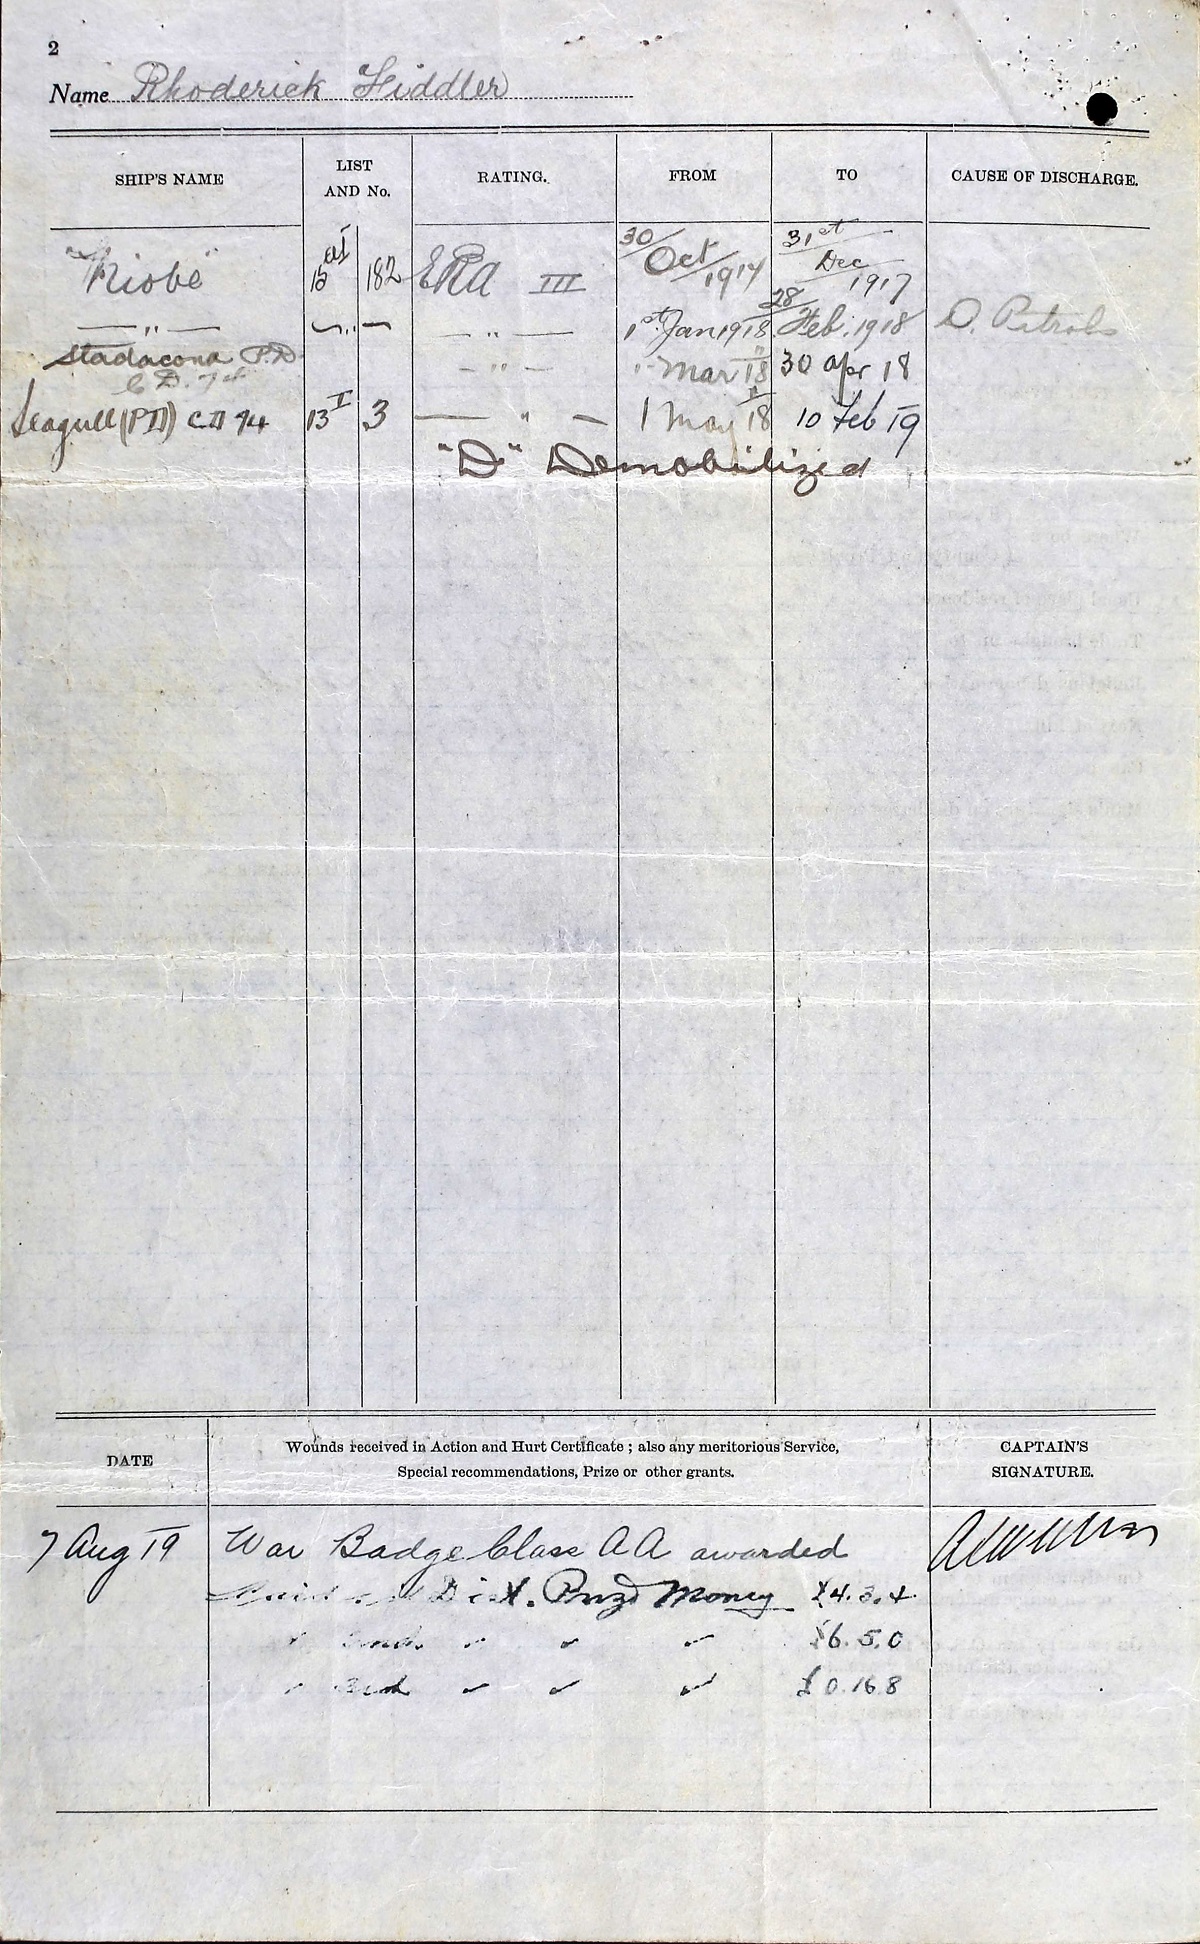 2
Name Rhoderick Fiddler
SHIP'S NAME LIST AND No. RATING. FROM TO CAUSE OF DISCHARGE.
"Niobe" 15 182 ERA III 30/Oct/1917 31st Dec 1917
— " — — " — — " — 1st Jan 1918 28/Feb. 1918 D. Patrols
Stadacona P.D. — " — 1 Mar 18 30 Apr 18
C.D. 74
Seagull (PD) CD 74 13 I 3 — " — 1 May 18 10 Feb 19
"D" Demobilized
DATE Wounds received in Action and Hurt Certificate ; also any meritorious Service, Special recommendations, Prize or other grants. CAPTAIN'S SIGNATURE.
7 Aug 19 War Badge Class AA awarded
Dist. Prize Money £4.3.4
" 2nd " " " £6.5.0
" 3rd " " " £0.16.8